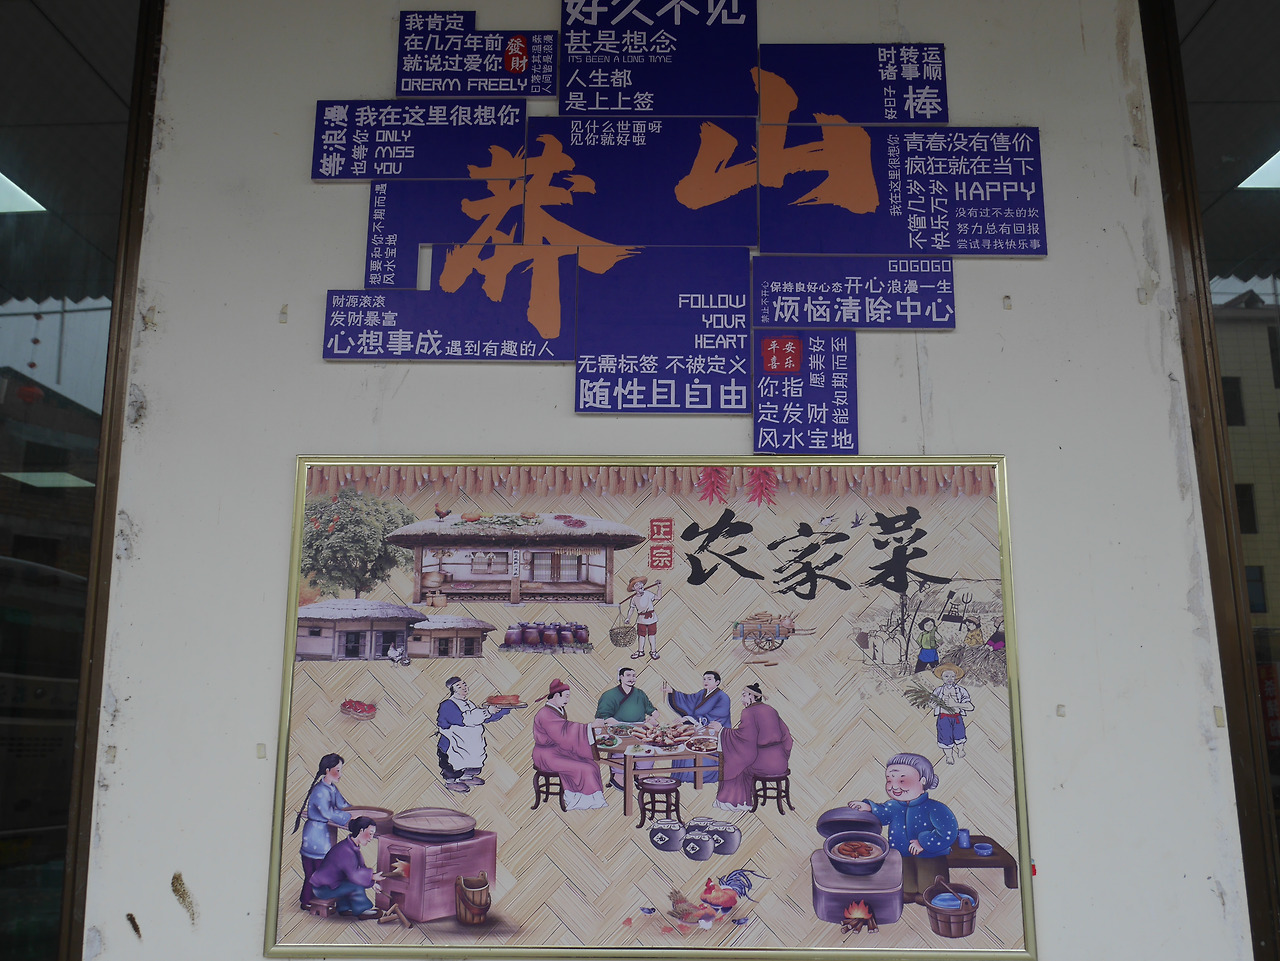 好久不见
甚是想念
IT'S BEEN A LONG TIME
人生都
是上上签
我肯定
在几万年前
就说过爱你
DRERM FREELY
發財
日落尤其温柔
人间皆是浪漫
时转运
诸事顺
好日子
棒
等浪漫
我在这里很想你
也等你
ONLY
MISS
YOU
见什么世面呀
见你就好啦
莽山
我在这里很想你
青春没有售价
疯狂就在当下
不管几分
快乐万分
HAPPY
没有过不去的坎
努力总有回报
尝试寻找快乐事
想要和你不期而遇
风水宝地
GOGOGO
禁止不开心
保持良好心态
开心浪漫一生
烦恼清除中心
财源滚滚
发财暴富
心想事成
遇到有趣的人
FOLLOW
YOUR
HEART
无需标签 不被定义
随性且自由
平安
喜乐
愿美好
能如期而至
你指
定发财
风水宝地
正宗
农家菜
酒
酒
酒